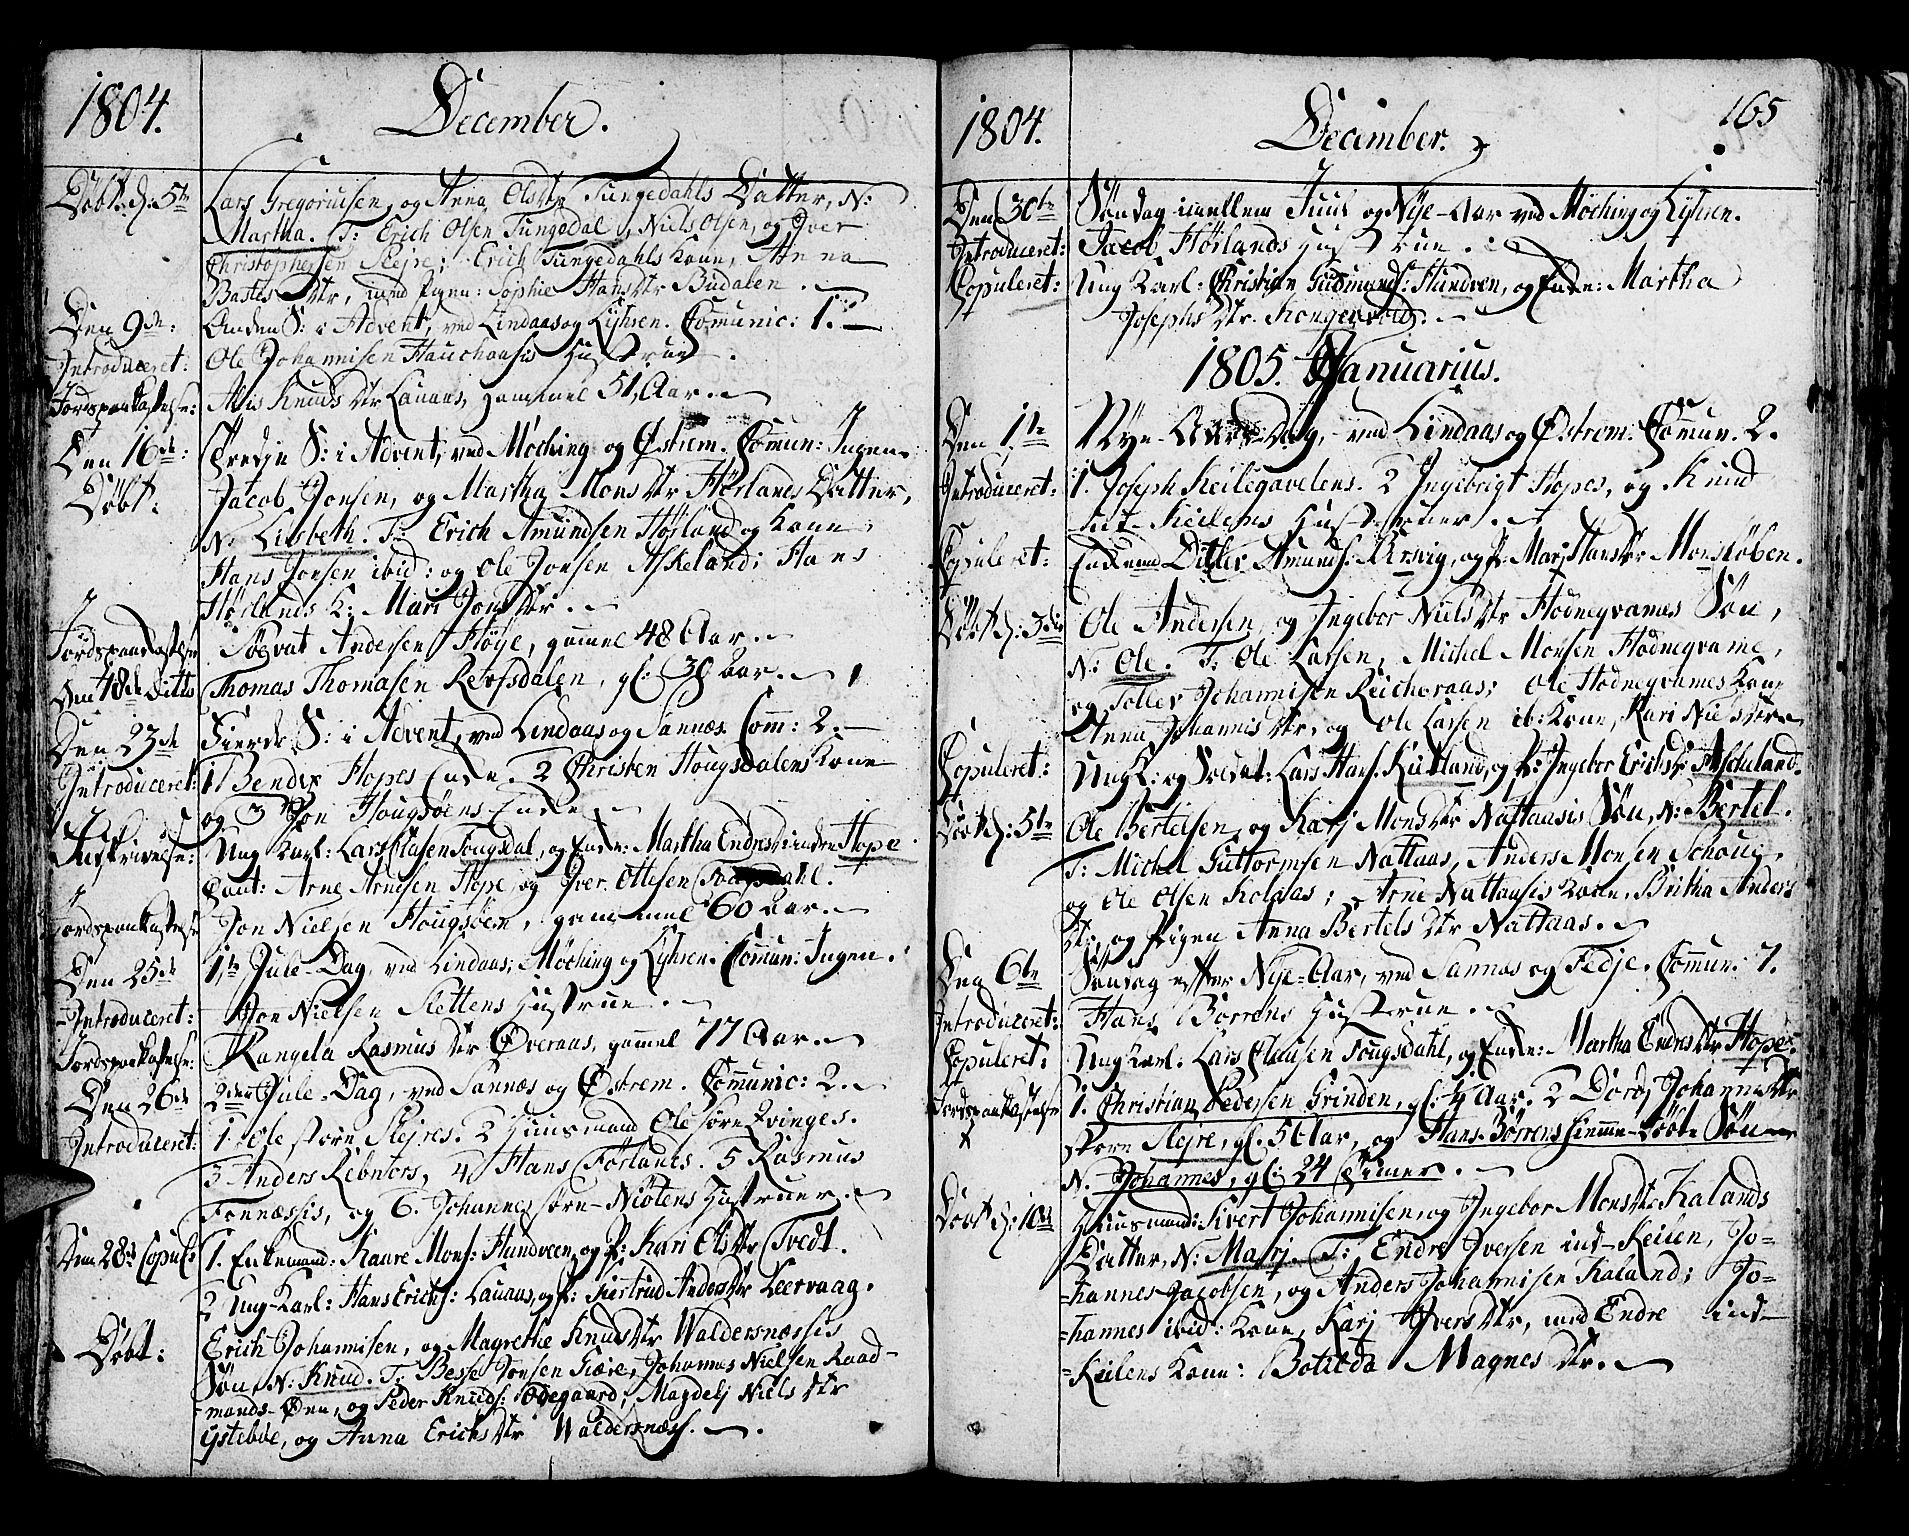 1804. December.
Døbt d: 5te Lars Gregoriusen, og Anna Olsdtr Tungedahls Datter, N:
Martha. T: Erich Olsen Tungedal, Niels Olsen, og Iver
Christophersen Slejre; Erich Tungedahls Kone, Anna
Bastes dtr, med Pigen: Sophie Hansdtr Budalen.
Den 9de: Anden S: i Advent, ved Lindaas og Lyhren. Communic: 1.
Introduceret: Ole Johannisen Hauchaasis Hustrue.
Jordspaakastelse: Alis Knudsdtr Lauaas, gammel 51 Aar.
Den 16de: Tredje S: i Advent, ved Møching og Østrem. Commun: Ingen.
Døbt: Jacob Jonsen, og Martha Monsdtr Hørlands Datter,
N: Lisbeth. T: Erich Amundsen Hørland og Kone,
Hans Jonsen ibid: og Ole Jonsen Askeland; Hans
Hørlands K: Mari Jonsdtr.
Jordspaakastelse Siøgvat Andersen Høye, gammel 48 Aar.
Den 18de Ditto Thomas Thomasen Refsdalen, gl: 30 Aar.
Den 23de Fierde S: i Advent, ved Lindaas og Sannæs. Comm: 2.
Introduceret: 1 Bendix Hopes Enke. 2 Christen Hougsdalens Kone
og 3 Jon Hougsøens Enke.
Inskrivelse: Ung Karl: Lars Clasen Fougsdal, og Enke: Martha Endresdtr indre Hope.
Caut: Arne Arnesen Hope, og Iver Ottesen Dahl.
Jordspaakastelse Jon Nielsen Hougsøen, gammel 60 Aar.
Den 25de 1te Jule-Dag, ved Lindaas, Møching og Lyhren. Commun: Ingen.
Introduceret: Jon Nielsen Slettens Hustrue.
Jordspaakastelse: Rangela Rasmusdtr Øveraas, gammel 77 Aar.
Den 26de 2den Jule-Dag, ved Sannæs og Østrem. Communic: 2.
Introduceret: 1. Ole store Slejres. 2 Huusmand Ole søre Qvinges.
3 Anders Rebnors, 4 Hans Førlands. 5 Rasmus
Fonnæssis, og 6. Johannes søre-Niøtens Hustruer.
Den 28de Copul: 1. Enkemand: Kaare Mons: Hundveen, og P: Kari Olsdtr Tvedt.
2 Ung-Karl: Hans Erichs: Lauaas, og P: Giertrud Andersdtr Leervaag.
Døbt: Erich Johannisen, og Magrethe Knudsdtr Waldersnæssis
Søn, N: Knud. T: Besse Jonsen Kære, Johannes Nielsen Raad-
mands-Øen, og Peder Knuds: Ødegaard; Magdelj Nielsdtr
Ystebøe, og Anna Erichsdtr Waldersnæss.
1804. December. 165
Den 30te Søndag imellem Juul og Nye-Aar ved Møching og Lyhren.
Introduceret: Jacob Hørlands Hustrue.
Copuleret: Ung Karl: Christian Gudmunds: Hundven, og Enke: Martha
Josephsdtr Kongesvold.
1805. Januarius.
Den 1te Nye-Aars Dag, ved Lindaas og Østrem. Commun. 2.
Introduceret: 1. Joseph Keilegavelens. 2 Ingebrigt Hopes, og Knud
ut-Keilens Hustruer.
Copuleret: Enkemand Ditlev Amunds: Kersvig, og P: Marj Hansdtr Monsløben.
Døbt d: 3die Ole Andersen, og Ingebor Nielsdtr Hodnegvames Søn,
N: Ole. T: Ole Larsen, Michel Monsen Hodnegvame,
og Tolles Johannisen Risheraas; Ole Hodnegvames Kone
Anna Johannisdtr, og Ole Larsen ib: Kone, Kari Nielsdtr
Copuleret: Ung K: og Soldat: Lars Hans: Kietland, og P: Ingebor Erichsdtr Ascheland.
Døbt d: 5te Ole Bertelsen, og Karj Monsdtr Nattaasis Søn, N: Bertel.
T: Michel Guttormsen Nattaas, Anders Monsen Schoug,
og Ole Olsen Kolaas; Arne Nattaasis Kone, Britha Anders
dtr, og Pigen Anna Bertelsdtr Nattaas.
Den 6te Søndag efter Nye-Aar, ved Sannæs og Fedje. Commun: 7.
Introduceret: Hans Børrens Hustrue.
Copuleret: Ung Karl: Lars Clausen Fougsdahl, og Enke: Martha Endresdtr Hope.
Jordspaakastelse 1. Christian Pedersen Grinden, gl: 4 Aar. 2 Dorj Johannisdtr
store Slejre, gl: 5 Aar, og Hans Børrens hiemme-døbte Søn
N. Johannes, gl: 24 Timer.
Døbt d: 10de Huusmand: Sivert Johannisen, og Ingebor Monsdtr Kalands
Datter, N: Marj. T: Endre Iversen ind-Keilen, Jo-
=hannes Jacobsen, og Anders Johannisen Kaland; Jo-
=hannes ibid: Kone, Karj Iversdtr, med Endre ind-
=Keilens Kone: Botilda Magnesdtr.